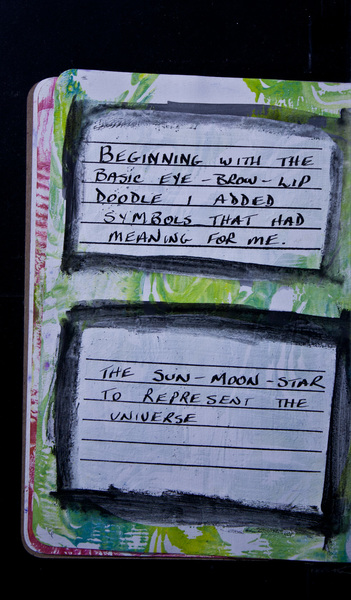 BEGINNING WITH THE
BASIC EYE-BROW-LIP
DOODLE I ADDED
SYMBOLS THAT HAD
MEANING FOR ME.
THE SUN-MOON-STAR
TO REPRESENT THE
UNIVERSE